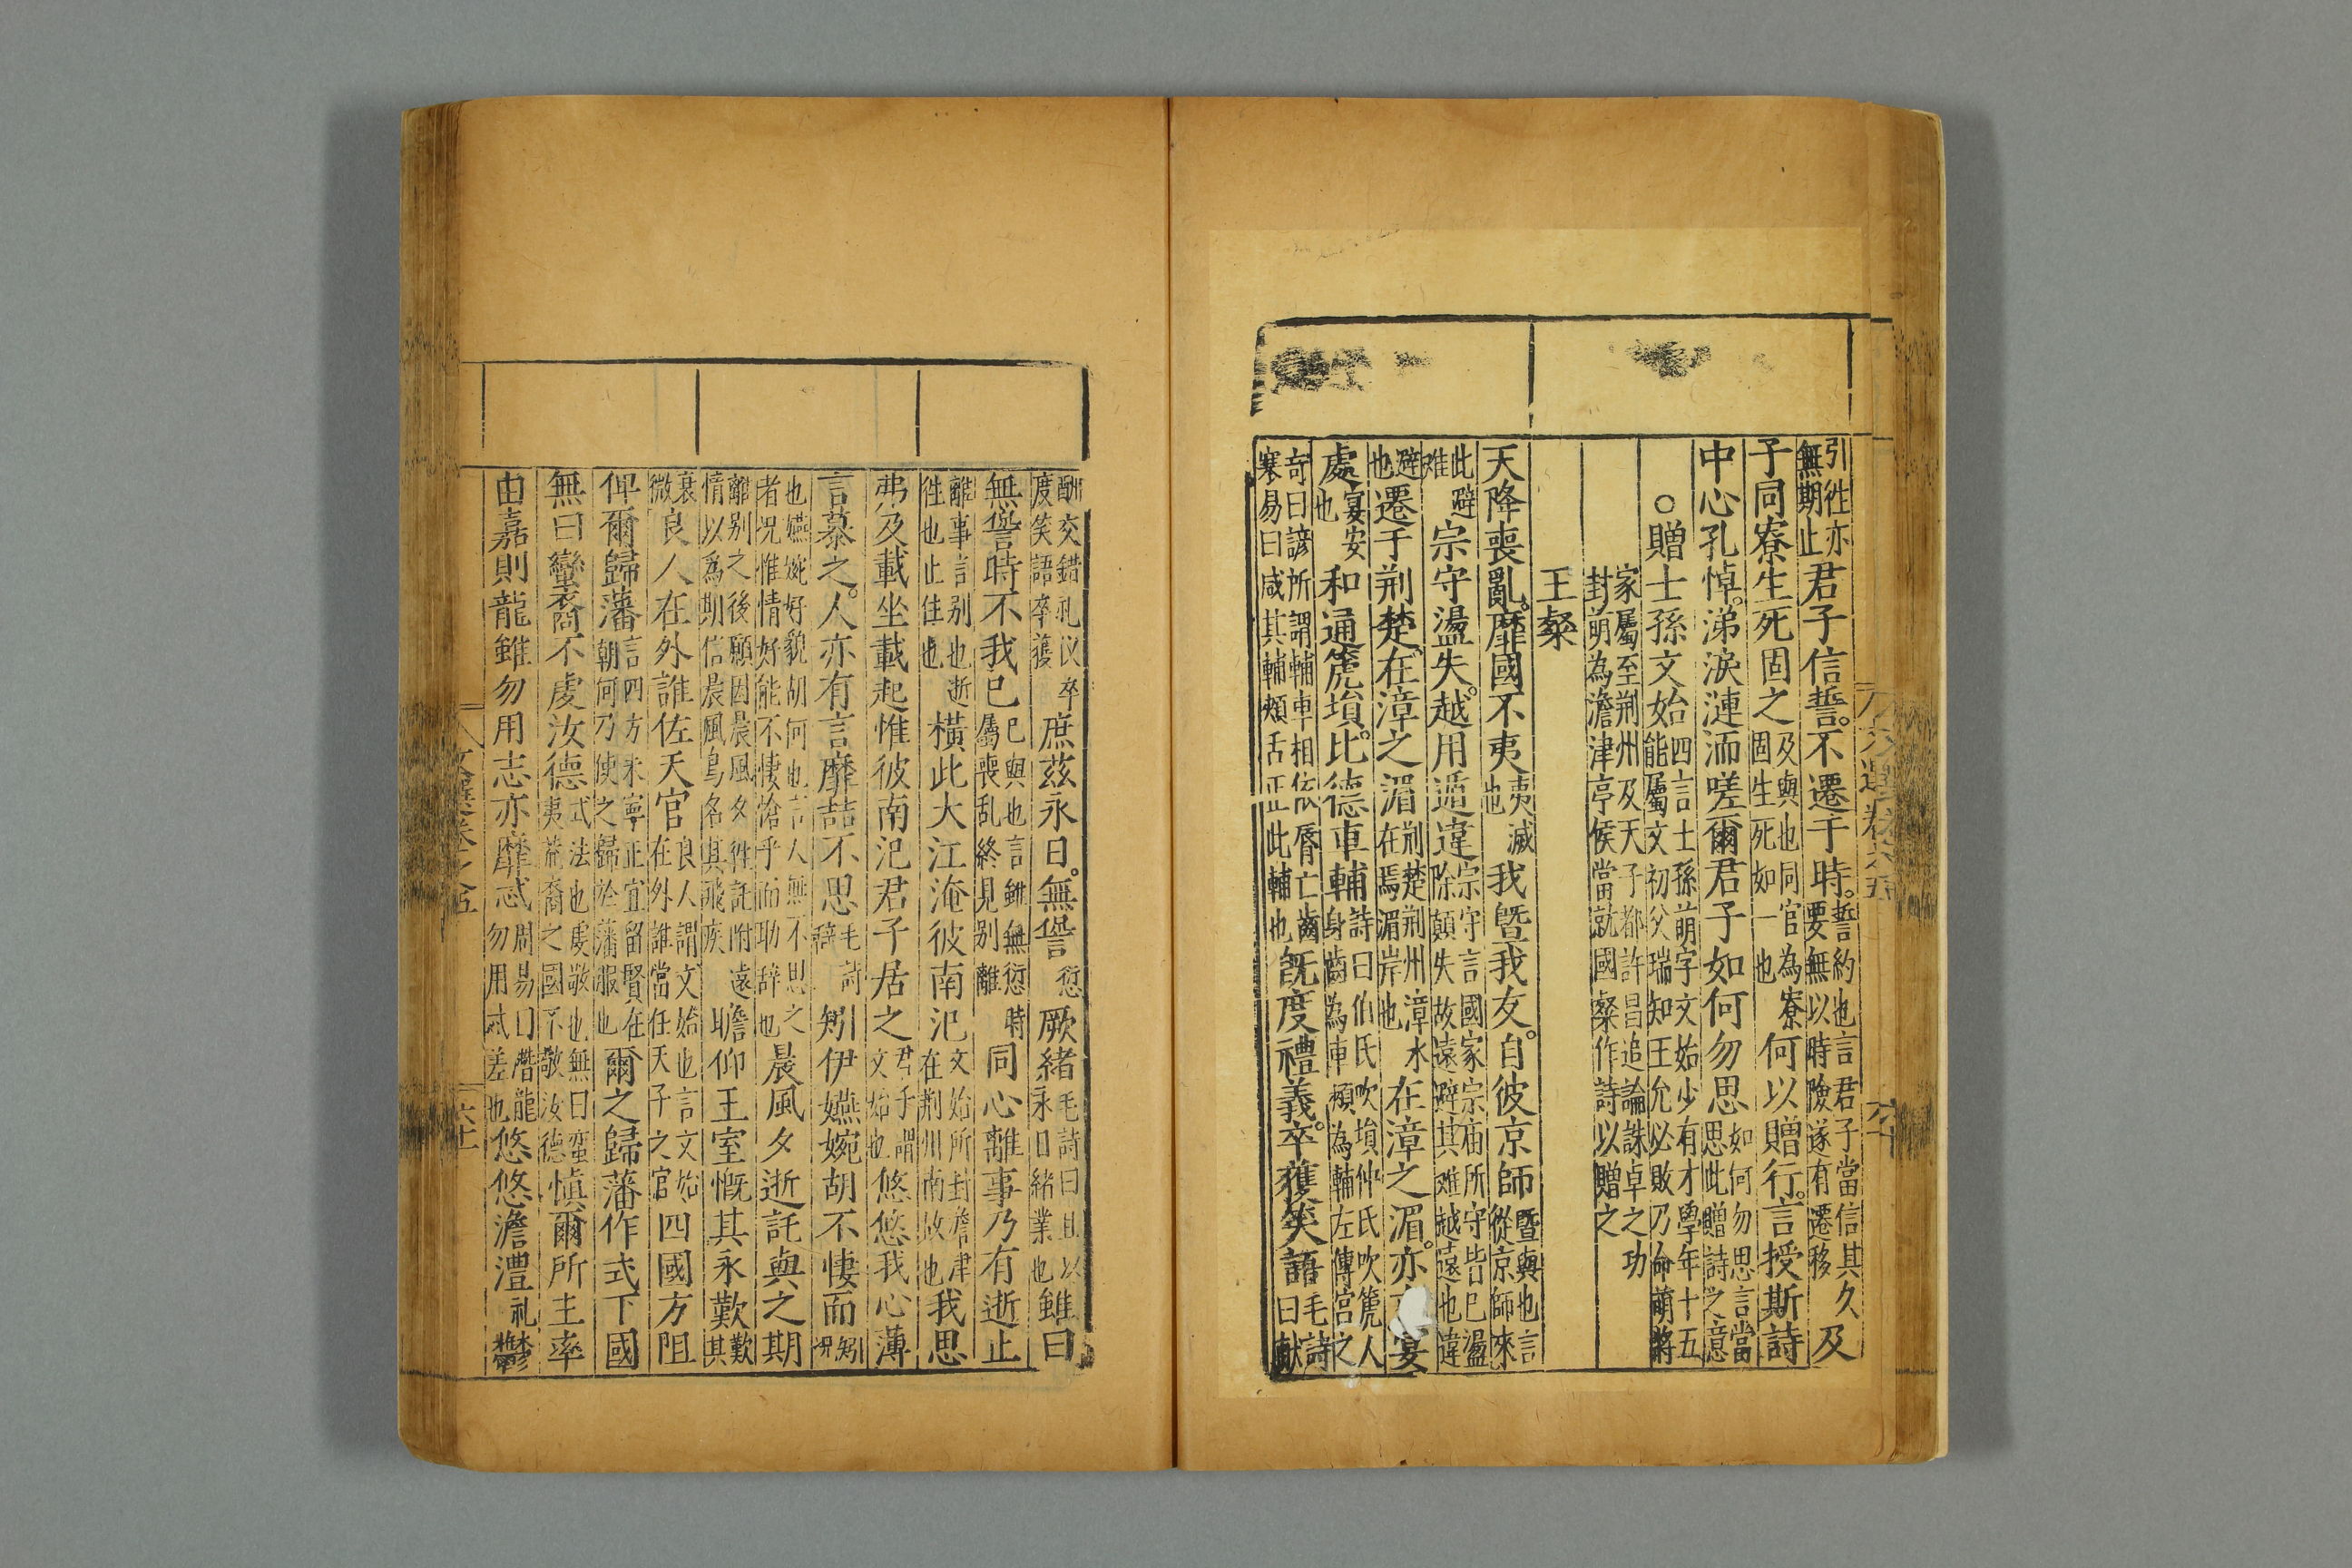 引徃亦無期止君子信誓不遷于時誓約也言君子當信其久要無以時險遂有遷移及
子同寮生死固之及與也同官為寮固生死如一也何以贈行言授斯詩
中心孔悼涕淚漣洏嗟爾君子如何勿思如何勿思言當思此贈詩之意
○贈士孫文始四言士孫萌字文始少有才學年十五能屬文初父瑞知王允必敗乃命萌將
家屬至荆州及天子都許昌追論誅卓之功封萌為澹津亭侯當就國粲作詩以贈之
王粲
天降喪亂靡國不夷夷滅也我曁我友自彼京師曁與也言從京師來
此避难宗守盪失越用遁違宗守言國家宗庙所守皆已盪除顛失故遠避其难越遠也違
避也遷于荆楚在漳之湄荆楚荆州漳水在焉湄岸也在漳之湄亦宴
處宴安也和通篪塤比德車輔詩曰伯氏吹塤仲氏吹篪人身齒為車頰為輔左傳宫之
奇曰諺所謂輔車相依唇亡齒寒易曰咸其輔頰舌正此輔也旣度禮義卒獲笑語毛詩曰献
酬交錯礼仪卒度笑語卒獲庶茲永日無諐愆厥緒毛詩曰且以永日緒業也雖曰
無諐時不我已已與也言雖無愆時屬喪乱終見别離同心離事乃有逝止
離事言别也逝徃也止住也橫此大江淹彼南汜文始所封澹津在荆州南故也我思
弗及載坐載起惟彼南汜君子居之君子謂文始也悠悠我心薄
言慕之人亦有言靡喆不思毛詩辞矧伊嬿婉胡不悽而矧况
也嬿婉好貌胡何也言人無不思之者况惟情好能不悽愴乎而助辞也晨風夕逝託與之期
離别之後願因晨風夕徃託附遠情以為期信晨風鳥名其飛疾瞻仰王室慨其永歎歎其
衰微良人在外誰佐天官良人謂文始也言文始在外誰當任天子之官四國方阻
俾爾歸藩言四方未寧正宜留賢在朝何乃使之歸於藩服也爾之歸藩作式下國
無曰蠻裔不虔汝德式法也虔敬也無曰蛮夷荒裔之國不敬汝德愼爾所主率
由嘉則龍雖勿用志亦靡忒周易曰潛龍勿用忒差也悠悠澹澧礼鬱